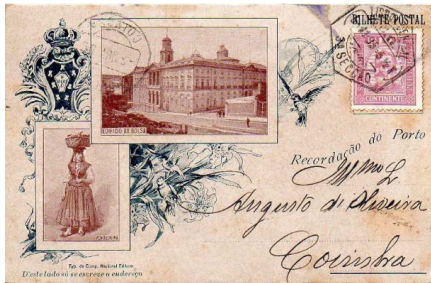 BILHETE POSTAL
CONTINENTE
3ª SECÇÃO
EDIFICIO DA BOLSA
Recordação do Porto
Illmo Sr.
Augusto de Oliveira
Coimbra
Typ. da Comp. Nacional Editora
D'este lado só se escreve o endereço